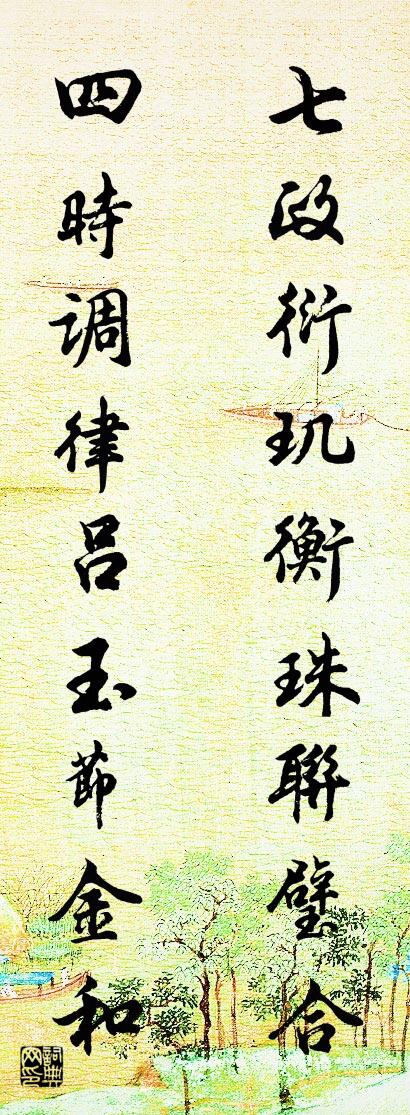 七政衍玑衡珠聯璧合
四時调律呂玉節金和
詞典
网印